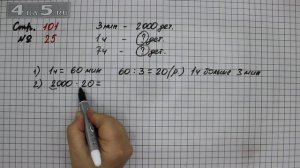 4LS.RU
Стр. 101
№ 25
3 мин - 2000 дет.
1ч - ? дет.
7ч - ? дет.
1) 1ч = 60 мин 60 : 3 = 20 (р.) 1ч больше 3 мин
2) 2000 · 20 =